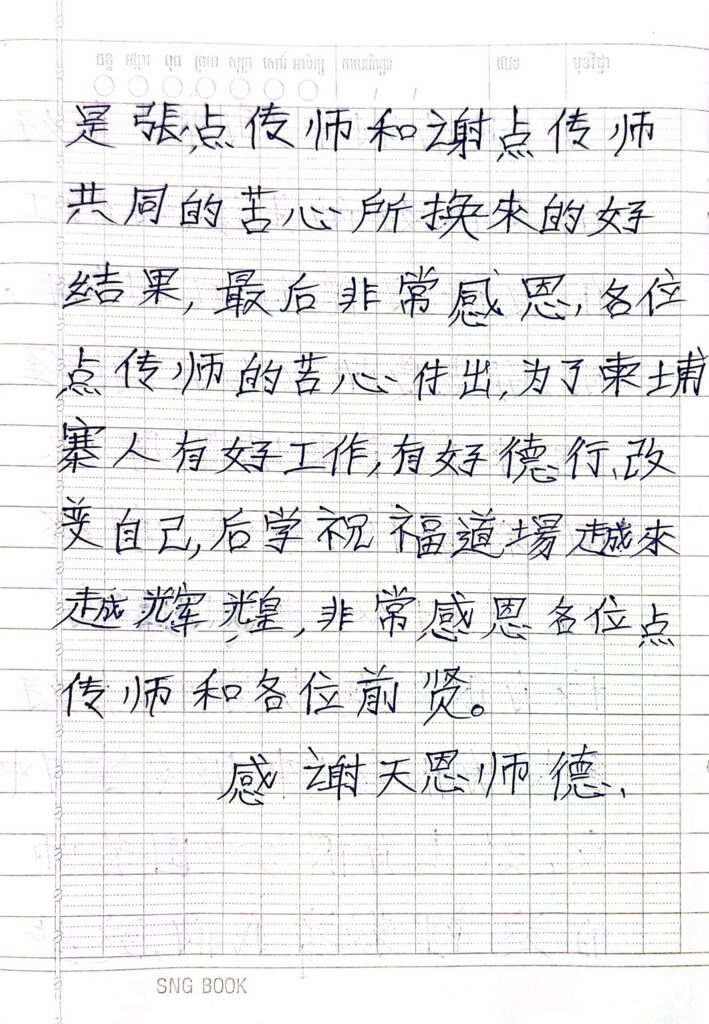 ចន្ទ អង្គារ ពុធ ព្រហ សុក្រ សៅរ៍ អាទិត្យ កាលបរិច្ឆេទ លេខ មុខវិជ្ជា
是張点传师和谢点传师
共同的苦心所换來的好
结果,最后非常感恩,各位
点传师的苦心付出,为了柬埔
寨人有好工作,有好德行、改
变自己,后学祝福道場越來
越輝煌,非常感恩各位点
传师和各位前贤。
感谢天恩师德、
SNG BOOK